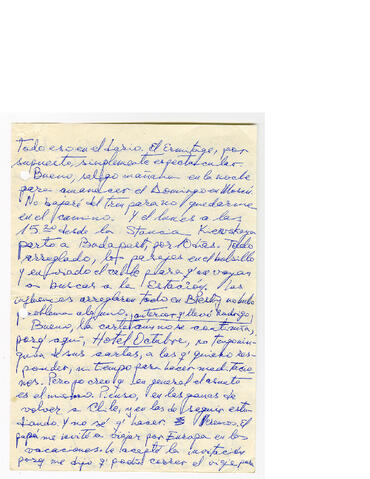 Todo eso en el diario. El Ermitage, por
supuesto, simplemente espectacular.
Bueno, salgo mañana en la noche
para amanecer el Domingo en Moscú.
No bajaré del tren para no quedarme
en el camino. Y el lunes a las
15.20 desde la Stancia Kievskaya
parto a Budapest, por 2 días. Todo
arreglado, los pasajes en el bolsillo
y enviado el cable para q' me vayan
a buscar a la Estación. Las
influencias arreglaron todo en no hubo
problema alguno, anterior q' llevó Rodrigo,
Bueno, la carta famosa continúa,
porq' aquí, Hotel Octubre, no tengo
a sus cartas, a las q' quiero res-
ponder, ni tiempo para hacer meditacio
nes. Pero yo creo q' en general el asunto
es el mismo. Pienso, en las ganas de
volver a Chile, y en las de seguir estu
diando. Y no sé q' hacer. Veremos. El
papá me invitó a viajar por Europa en las
vacaciones. Le acepté la invitación
porq' me dijo q' podía correr el viaje para